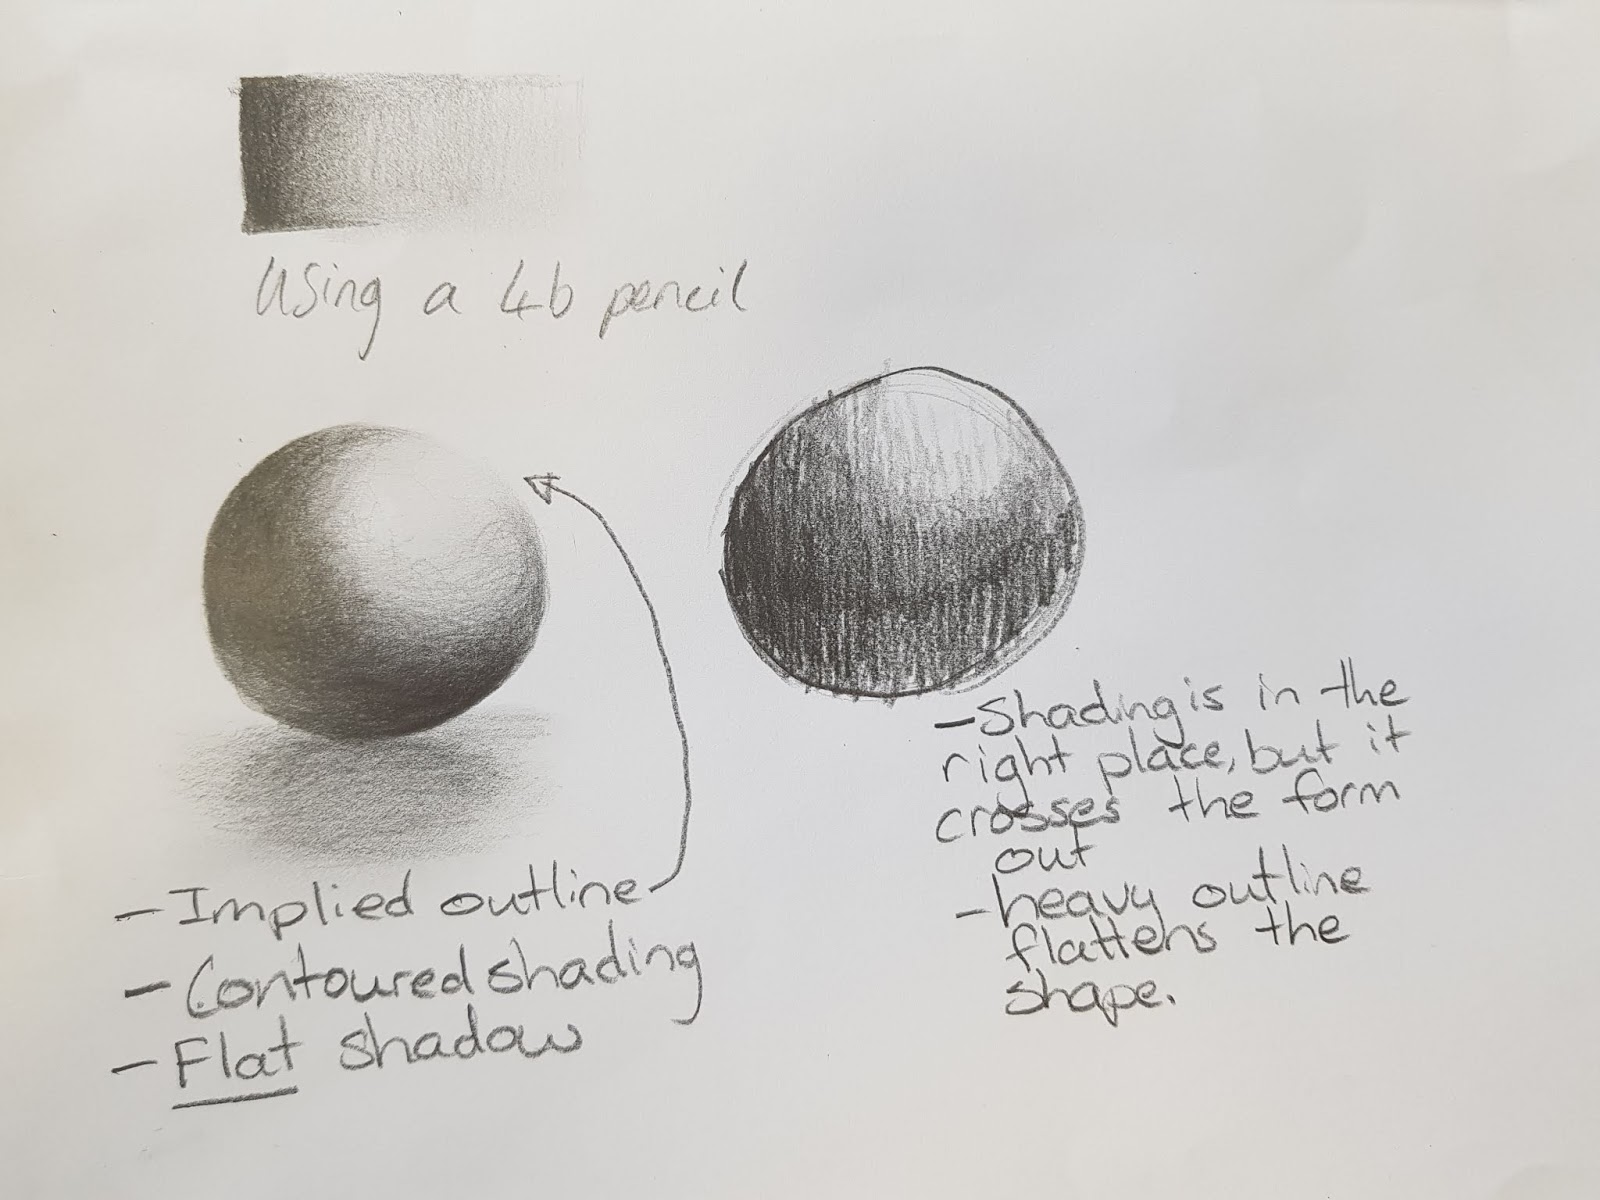 Using a 4b pencil
- Implied outline
- Contoured shading
- Flat shadow
- Shading is in the
right place, but it
crosses the form
out
- heavy outline
flattens the
shape.